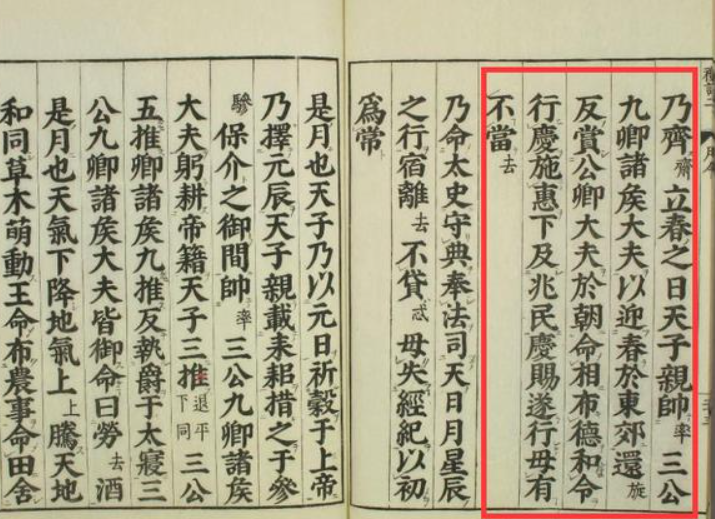 禮記二
月令
乃齊齋立春之日天子親帥率三公
九卿諸矦大夫以迎春於東郊還旋
反賞公卿大夫於朝命相布德和令
行慶施惠下及兆民慶賜遂行毋有
不當去
乃命太史守典奉法司天日月星辰
之行宿離去不貸忒毋失經紀以初
爲常
是月也天子乃以元日祈穀于上帝
乃擇元辰天子親載耒耜措之于參
驂保介之御間帥率三公九卿諸矦
大夫躬耕帝籍天子三推退平下同三公
五推卿諸矦九推反執爵于太寢三
公九卿諸矦大夫皆御命曰勞去酒
是月也天氣下降地氣上上騰天地
和同草木萌動王命布農事命田舍